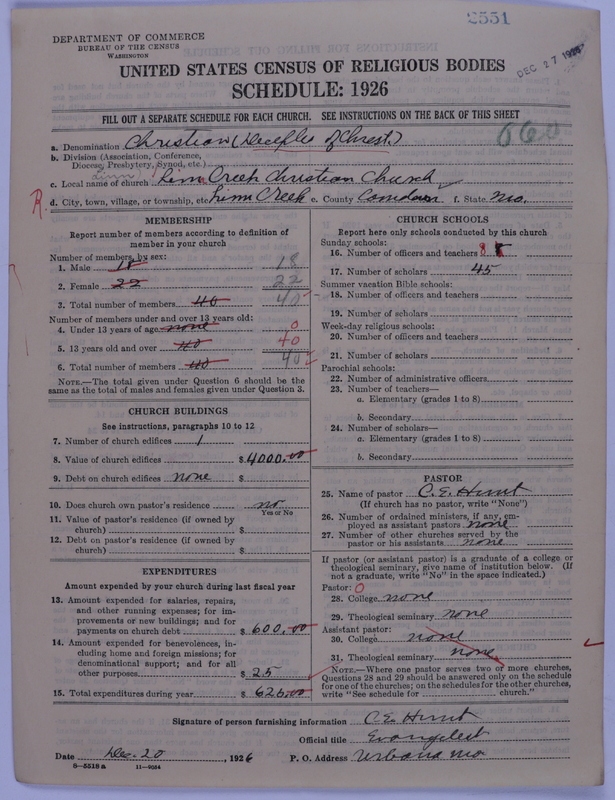 2551
DEPARTMENT OF COMMERCE
BUREAU OF THE CENSUS
WASHINGTON
DEC 27 1926
UNITED STATES CENSUS OF RELIGIOUS BODIES
SCHEDULE: 1926
FILL OUT A SEPARATE SCHEDULE FOR EACH CHURCH. SEE INSTRUCTIONS ON THE BACK OF THIS SHEET
660
a. Denomination Christian (Deciples of Christ.)
b. Division (Association, Conference,
Diocese, Presbytery, Synod, etc.)
linn
c. Local name of church Linn Creek Christian Church
R. d. City, town, village, or township, etc. Linn Creek e. County Camden f. State Mo.
MEMBERSHIP
Report number of members according to definition of
member in your church
Number of members, by sex:
1. Male 18 18
2. Female 22 22
3. Total number of members 40 40
Number of members under and over 13 years old:
4. Under 13 years of age none 0
5. 13 years old and over 40 40
6. Total number of members 40 40
NOTE.—The total given under Question 6 should be
same as the total of males and females given under Question 3.
CHURCH BUILDINGS
See instructions, paragraphs 10 to 12
7. Number of church edifices 1
8. Value of church edifices $4000.00
9. Debt on church edifices none $
10. Does church own pastor's residence no
Yes or No
11. Value of pastor's residence (if owned by
church) $
12. Debt on pastor's residence (if owned by
church) $
EXPENDITURES
Amount expended by your church during last fiscal year
13. Amount expended for salaries, repairs,
and other running expenses; for im-
provements or new buildings; and for
payments on church debt $600.00
14. Amount expended for benevolences, in-
cluding home and foreign missions; for
denominational support; and for all
other purposes $25
15. Total expenditures during year $625.00
CHURCH SCHOOLS
Report here only schools conducted by this church
Sunday schools:
16. Number of officers and teachers 8
17. Number of scholars 45
Summer vacation Bible schools:
18. Number of officers and teachers
19. Number of scholars
Week-day religious schools:
20. Number of officers and teachers
21. Number of scholars
Parochial schools:
22. Number of administrative officers
23. Number of teachers—
a. Elementary (grades 1 to 8)
b. Secondary
24. Number of scholars—
a. Elementary (grades 1 to 8)
b. Secondary
PASTOR
25. Name of pastor C. E. Hunt
(If church has no pastor, write "None")
26. Number of ordained ministers, if any, em-
ployed as assistant pastors none
27. Number of other churches served by the
pastor or his assistants none
If pastor (or assistant pastor) is a graduate of a college or
theological seminary, give name of institution below. (If
not a graduate, write "No" in the space indicated.)
Pastor: 0
28. College none
29. Theological seminary none
Assistant pastor:
30. College none
31. Theological seminary none
NOTE.—Where one pastor serves two or more churches,
Questions 28 and 29 should be answered only on the schedule
for one of the churches; on the schedules for the other churches,
write "See schedule for church."
Signature of person furnishing information C. E. Hunt
Official title Evangelist
Date Dec. 20, 1926 P. O. Address Urbana Mo
8—5518a 11—9064